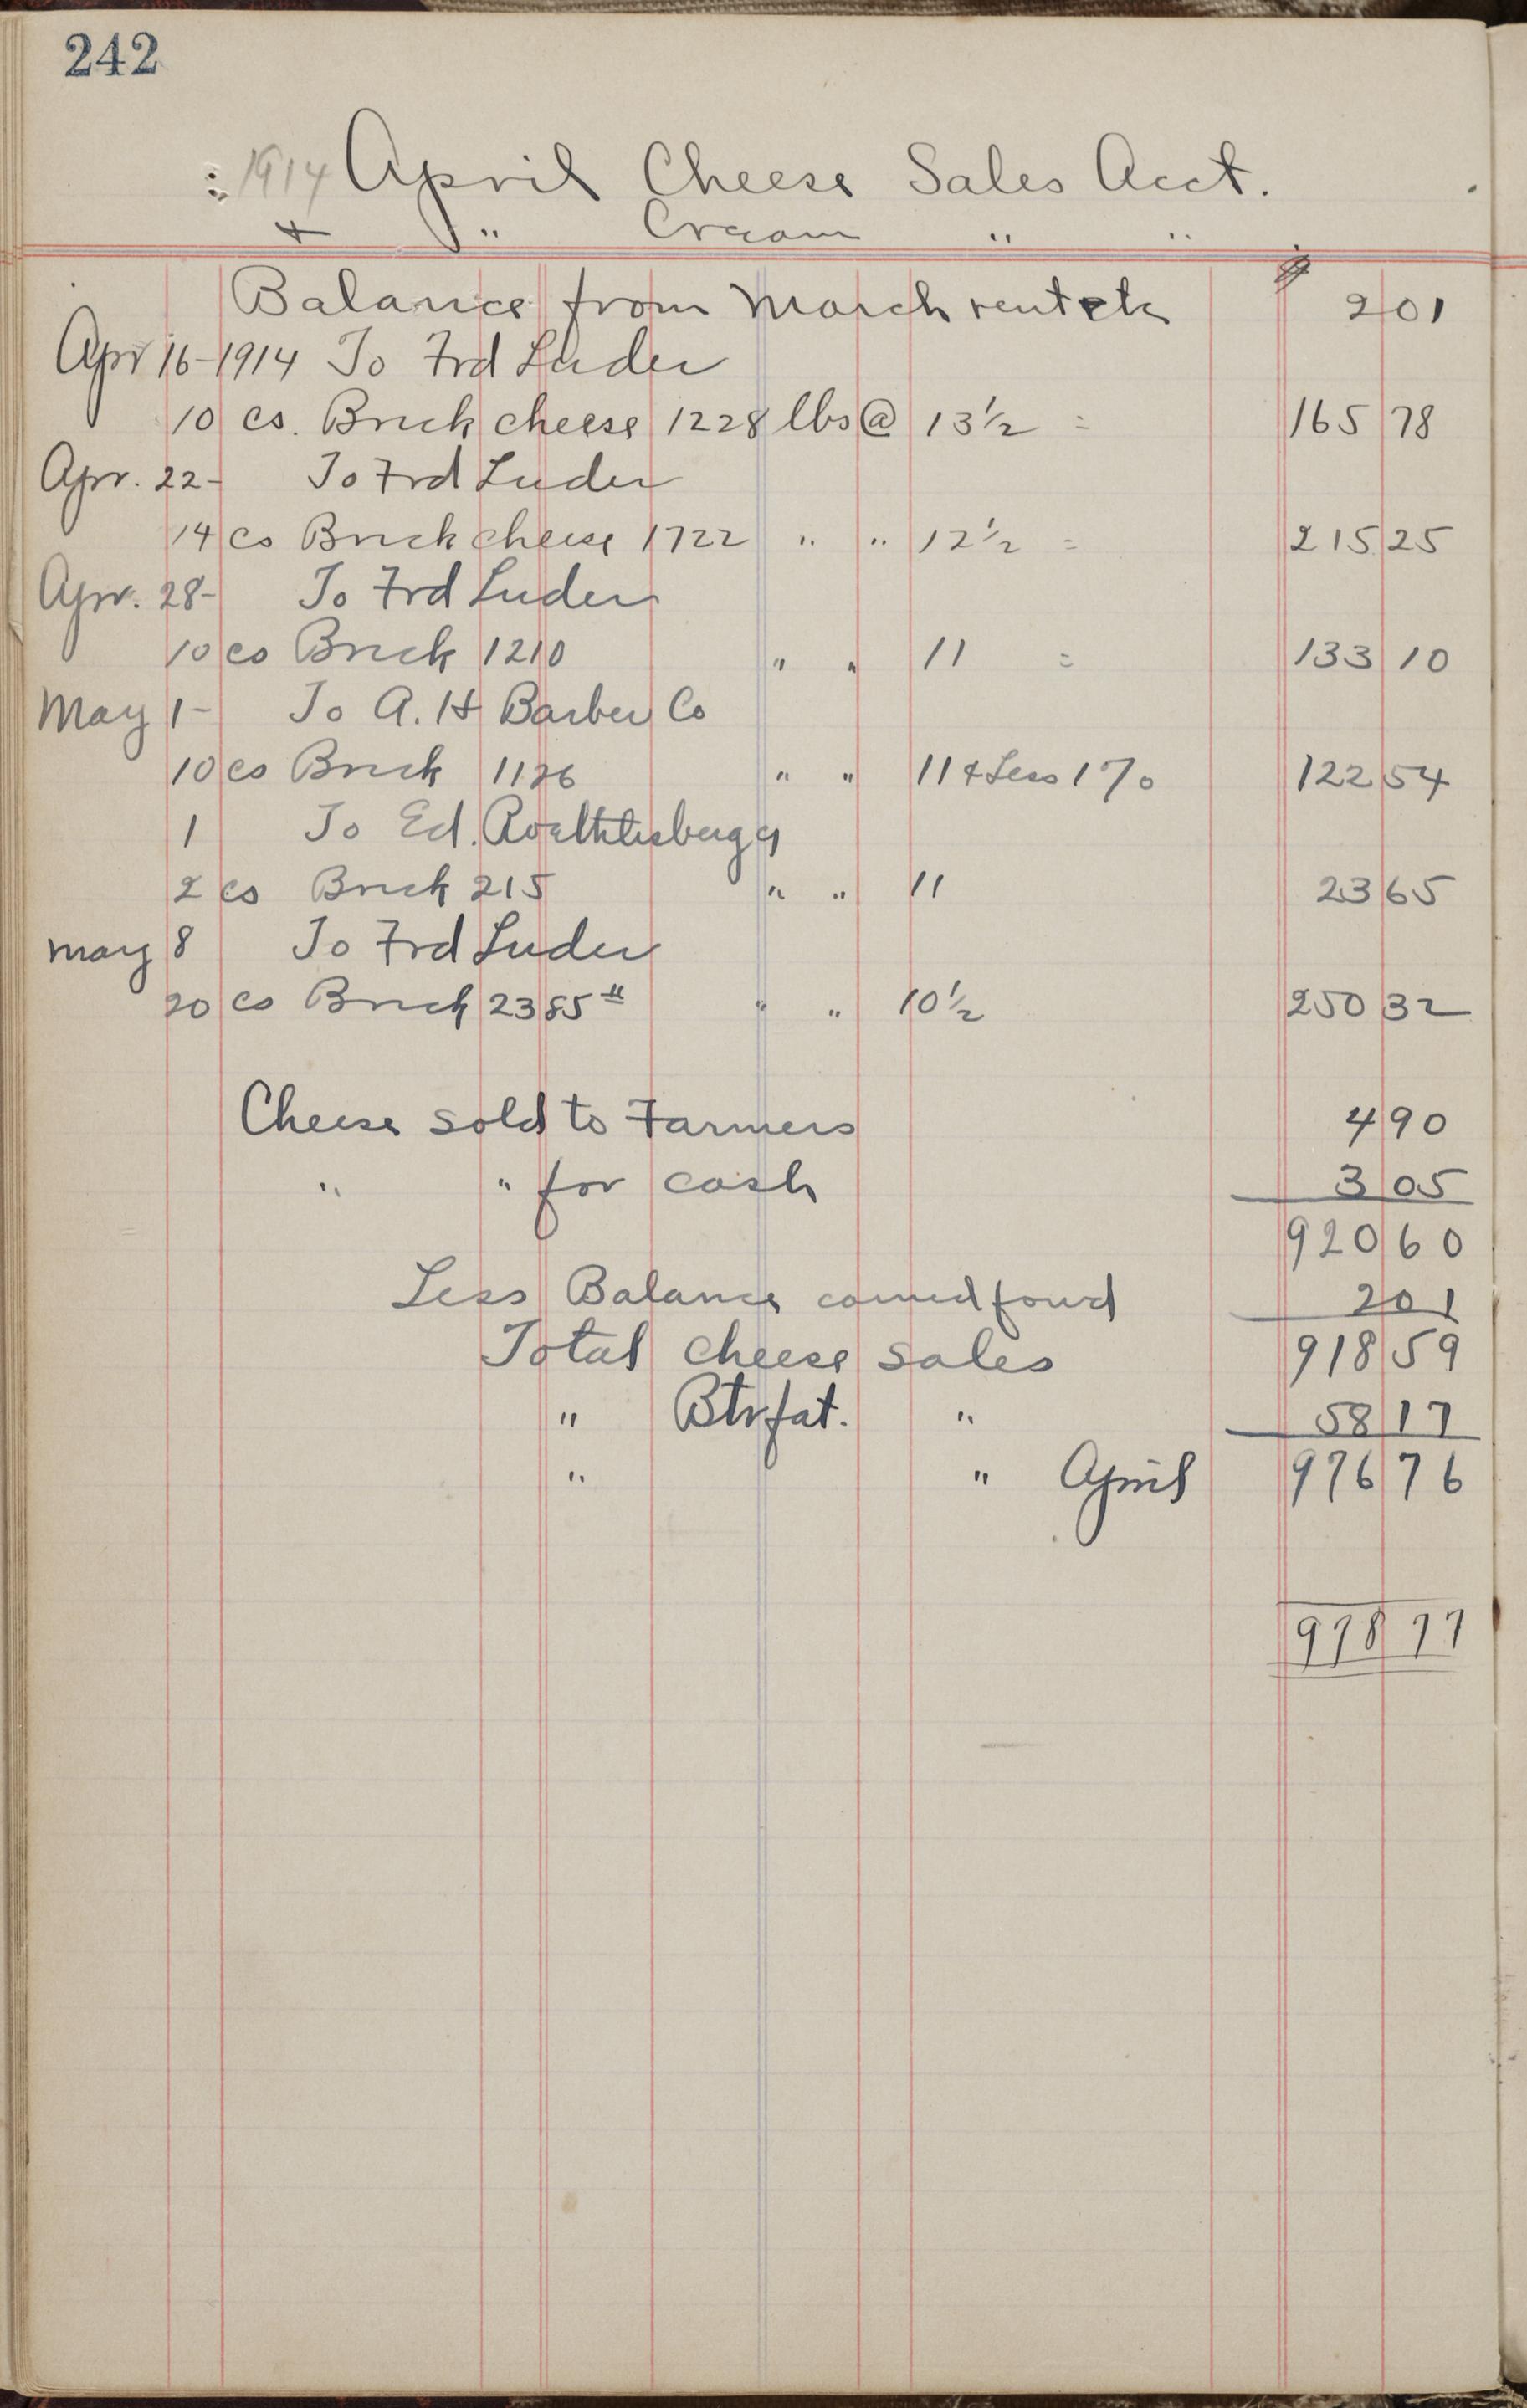 242
1914 April Cheese Sales Acct.
+ " Cream " "
Balance from March rent etc 2 01
Apr 16-1914 To Frd Luder
10 cs. Brick cheese 1228 lbs @ 13 1/2 = 165 78
Apr. 22- To Frd Luder
14 cs Brick cheese 1722 " " 12 1/2 = 215 25
Apr. 28- To Frd Luder
10 cs Brick 1210 " " 11 = 133 10
May 1- To A. H Barber Co
10 cs Brick 1126 " " 11 & Less 1% 122 54
1 To Ed. Roethlisberger
2 cs Brick 215 " " 11 23 65
May 8 To Frd Luder
20 cs Brick 2385 # " " 10 1/2 250 32
Cheese sold to Farmers 4 90
" " for cash 3 05
920 60
Less Balance carried forwd 2 01
Total cheese sales 918 59
" Btrfat. " 58 17
" " April 976 76
978 77